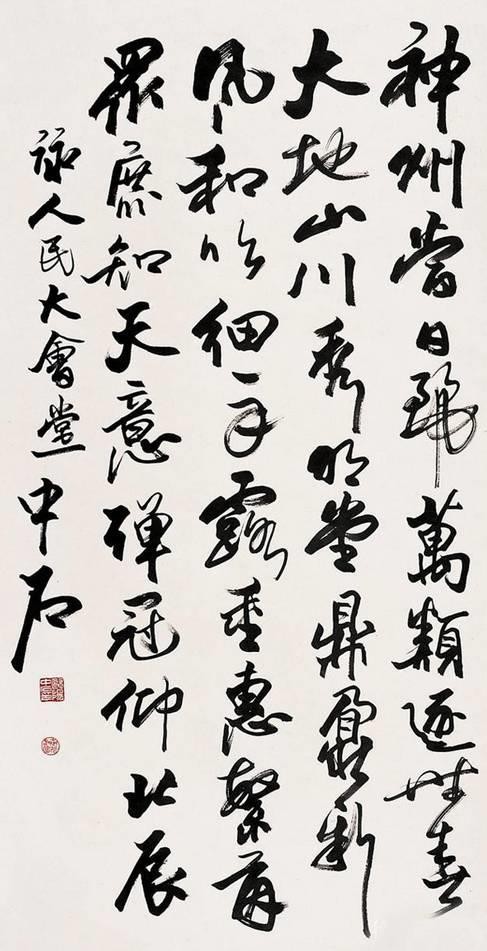 神州當日麗萬類逐時春
大地山川秀明堂鼎鼐新
風和細露垂惠繁
眾庶知天意彈冠仰北辰
詠人民大會堂 中石